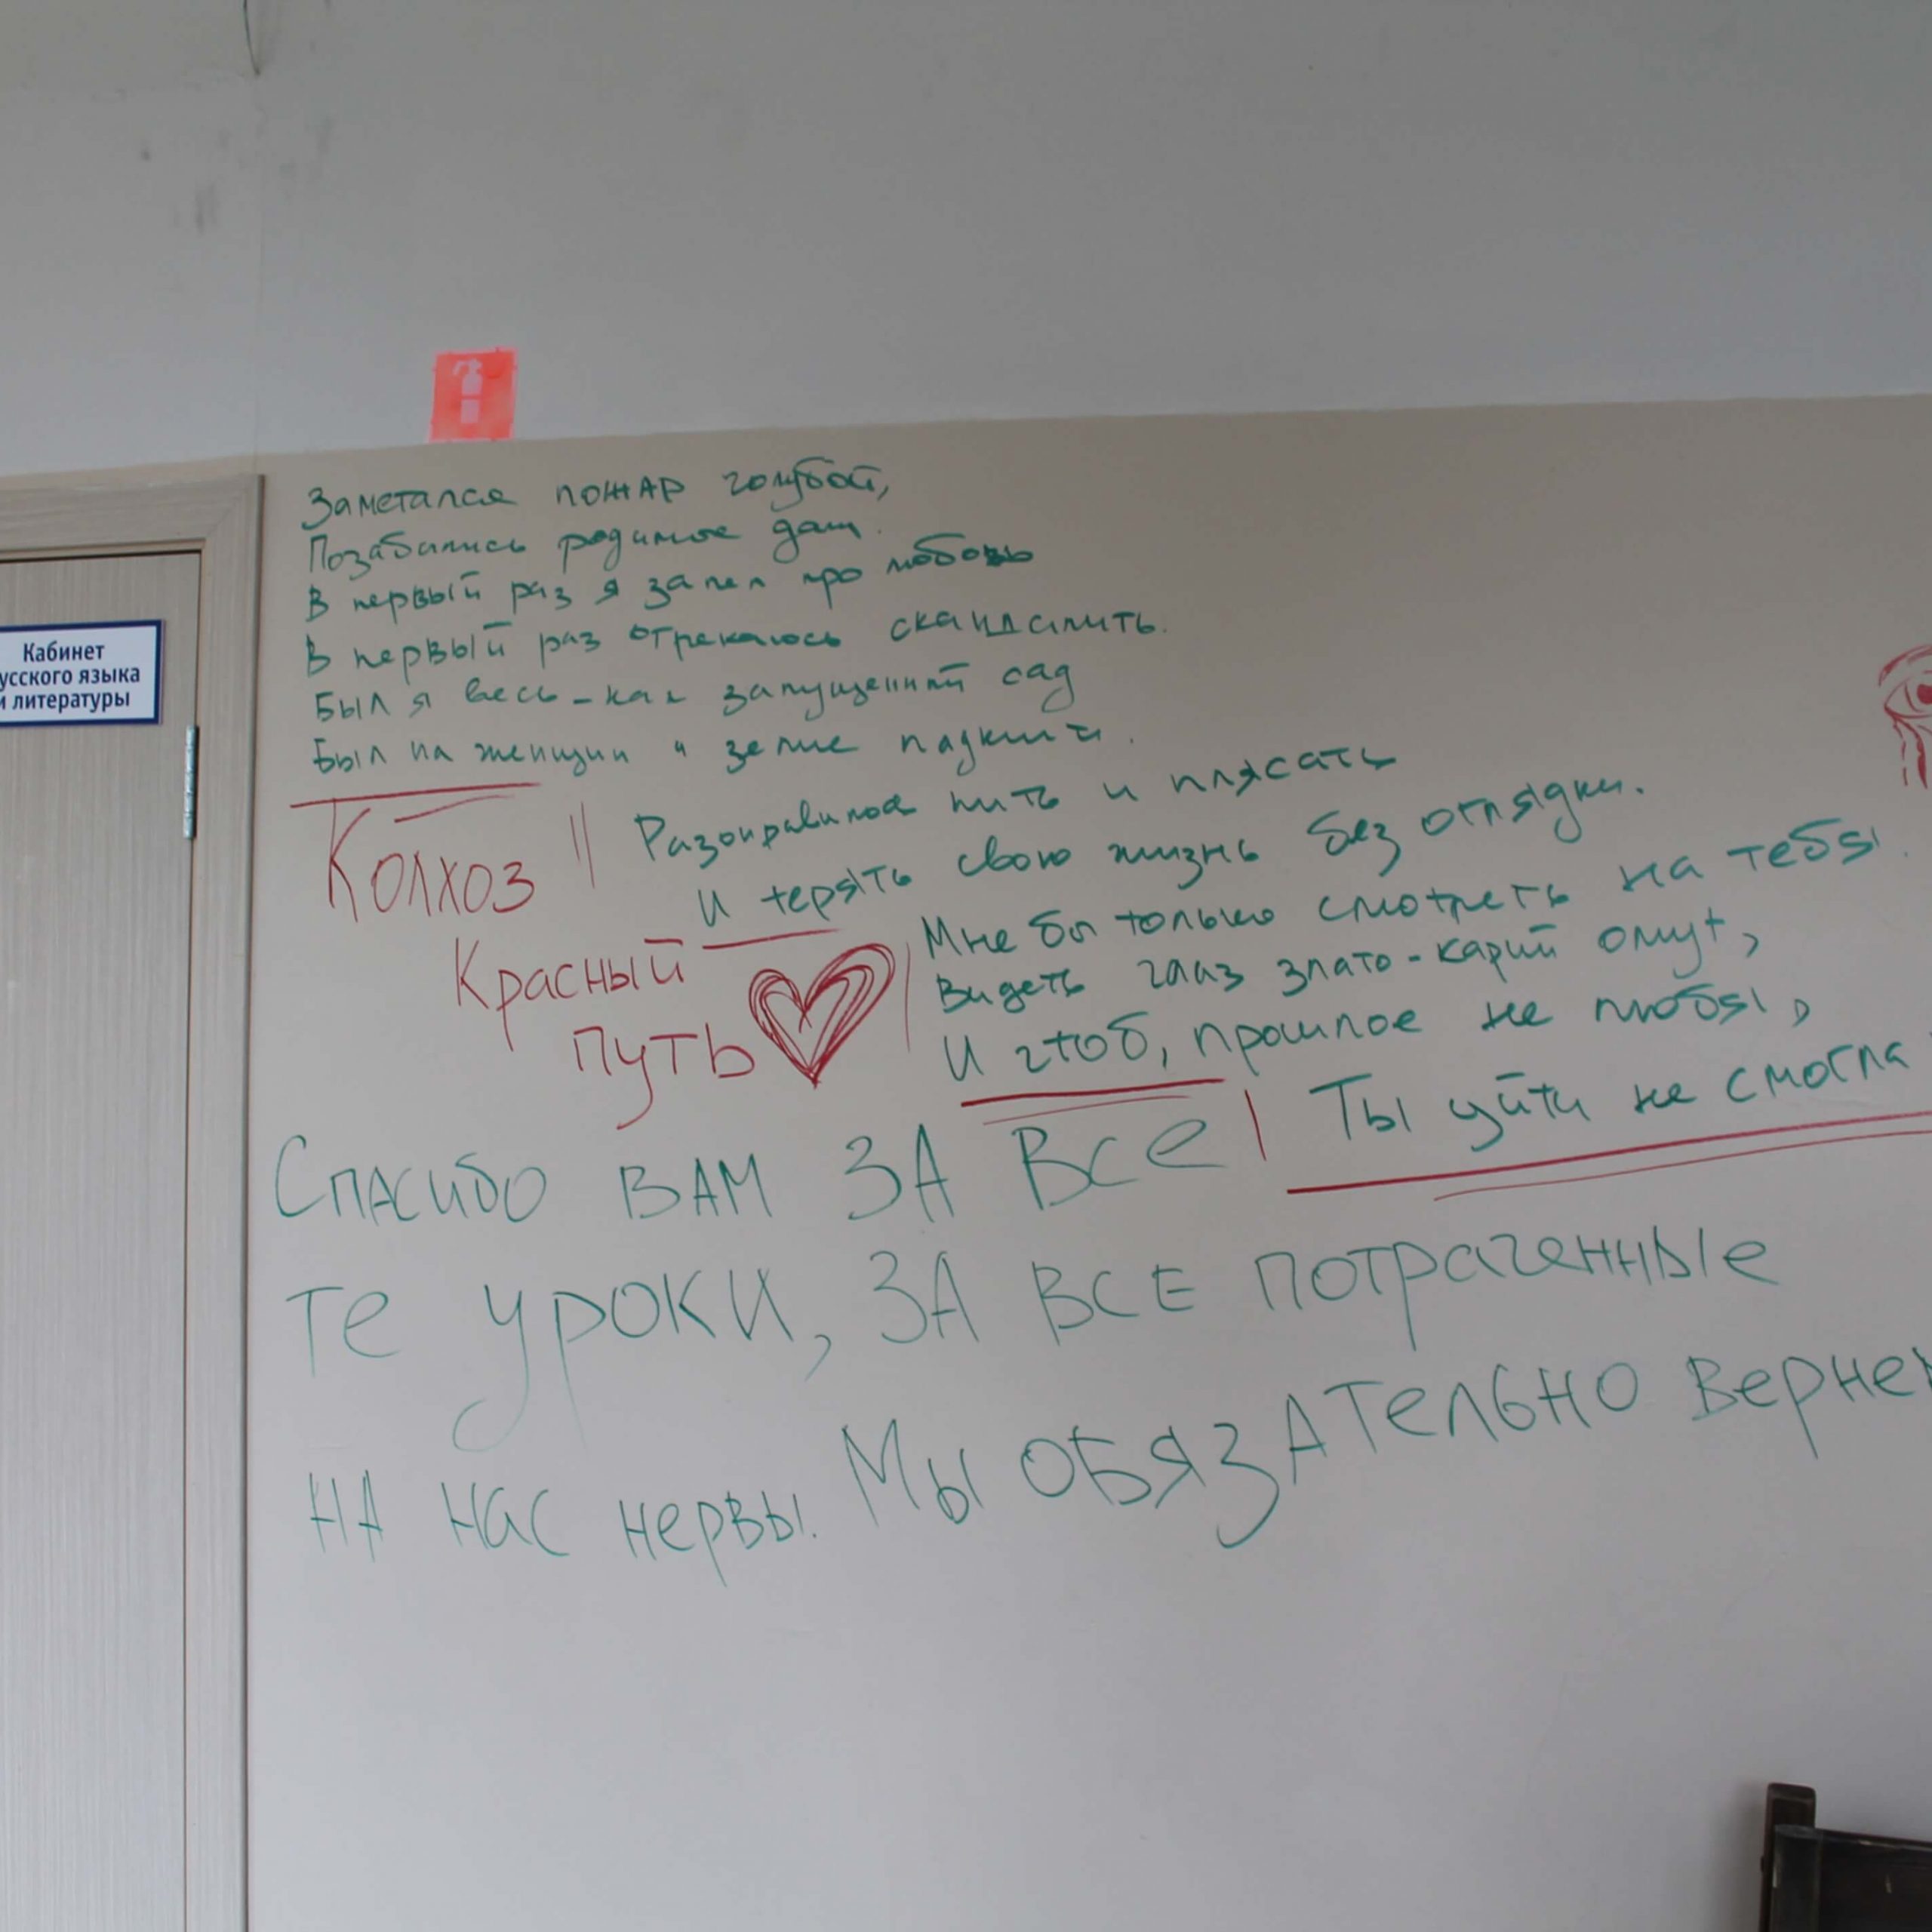 Кабинет
усского языка
и литературы
Заметался пожар голубой,
Позабылись родимые дали.
В первый раз я запел про любовь
В первый раз отрекаюсь скандалить.
Был я весь - как запущенный сад
Был на женщин и зелие падкий.
Разонравилось пить и плясать
И терять свою жизнь без оглядки.
Колхоз
Красный
путь
Мне бы только смотреть на тебя
Видеть глаз злато-карий омут,
И чтоб, прошлое не любя,
Ты уйти не смогла
Спасибо вам за все
те уроки, за все потраченные
на нас нервы. Мы обязательно верне